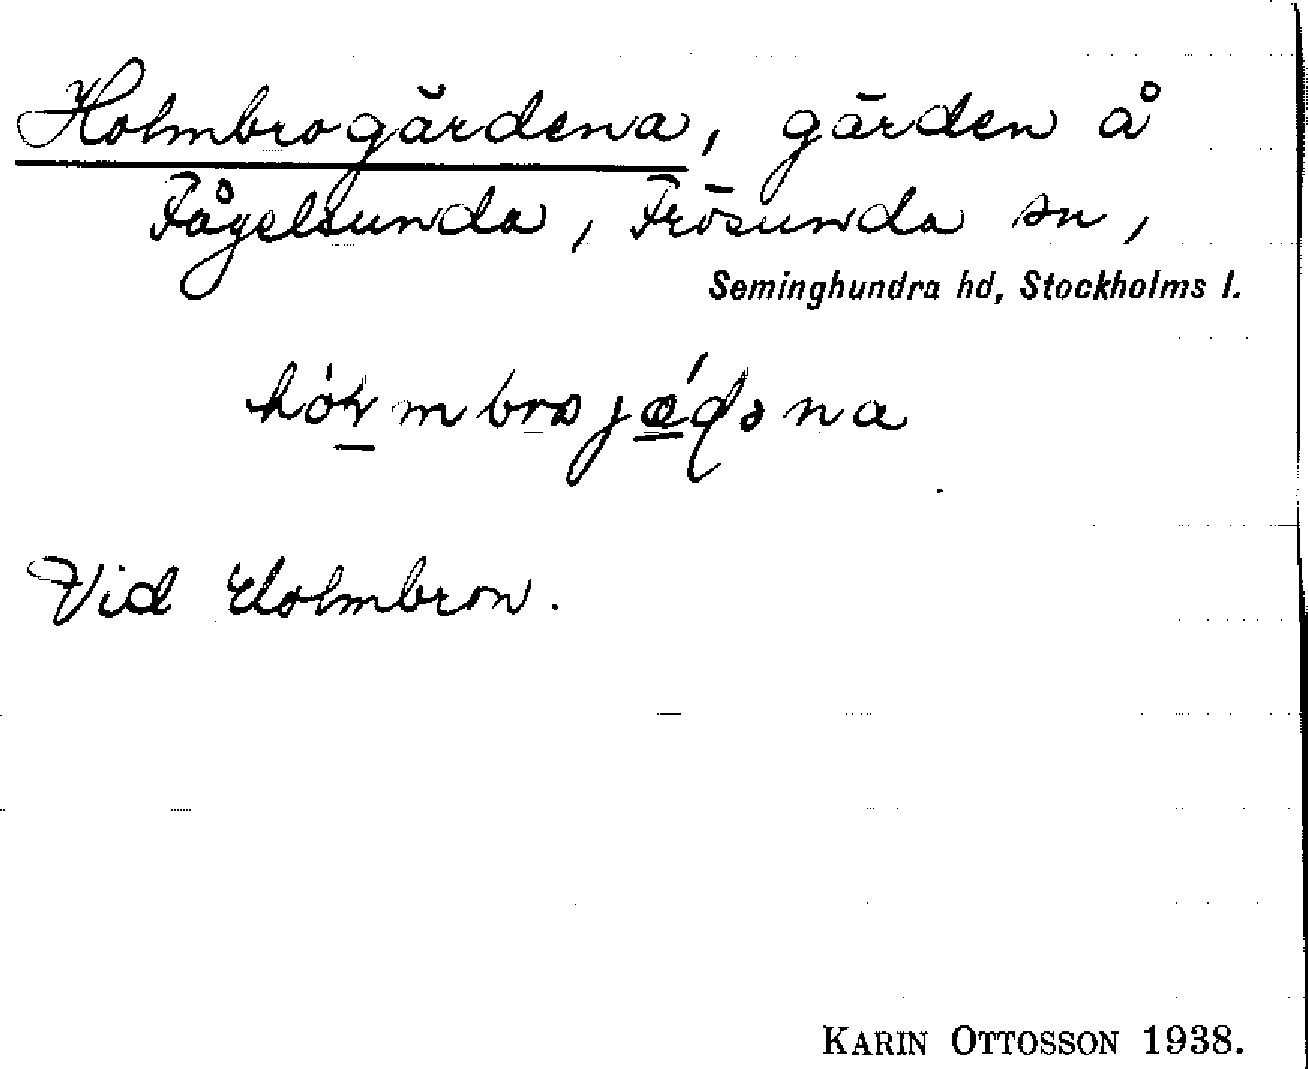 Holmbrogärdena, gärden å
Fågelsunda, Frösunda sn,
Seminghundra hd, Stockholms l.
Vid Holmbron.
KARIN OTTOSSON 1938.